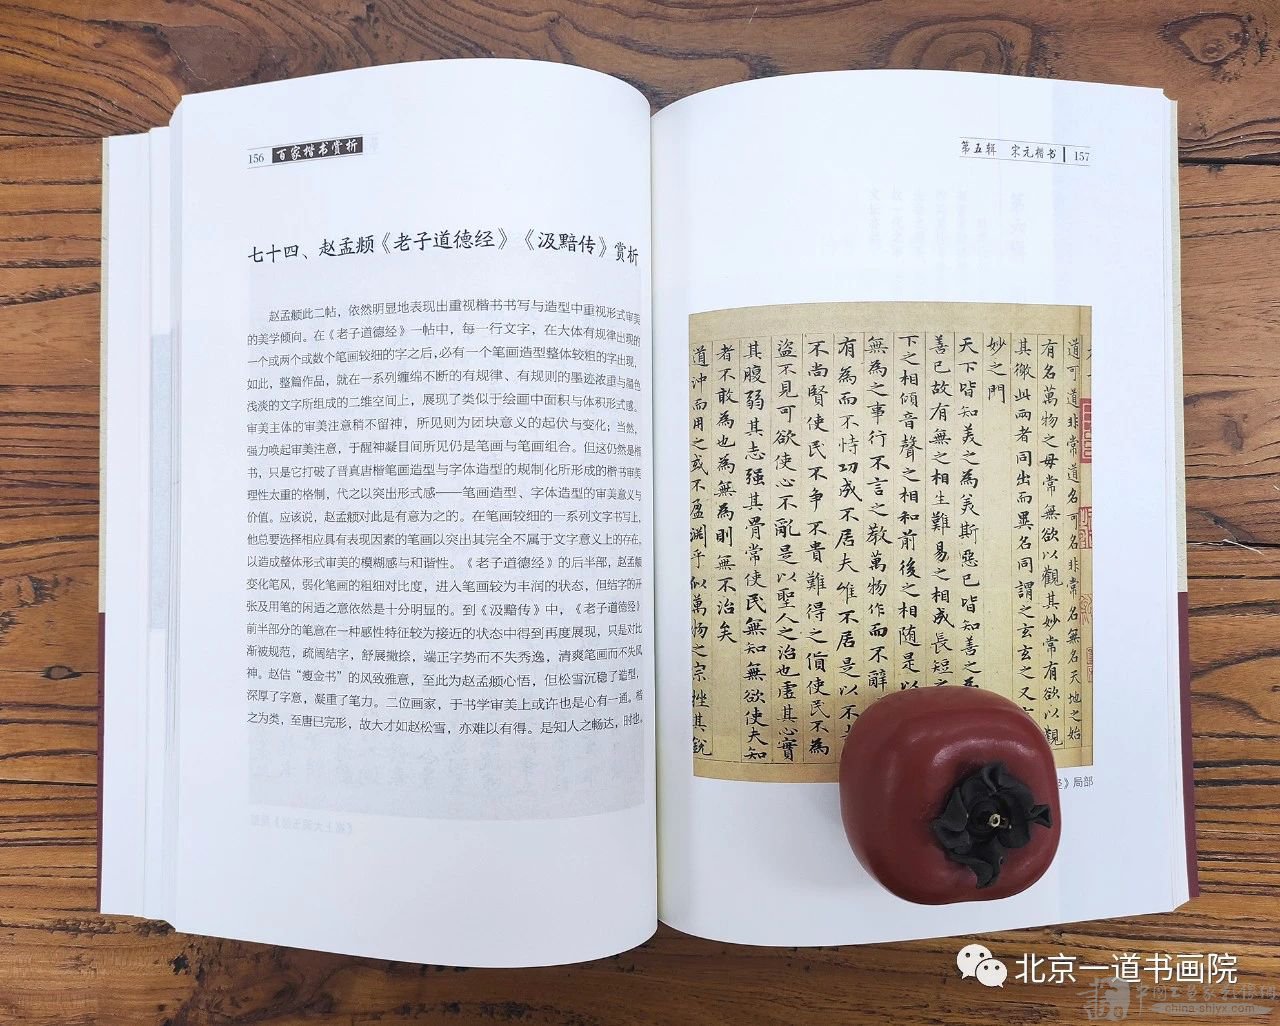 156 百家楷书赏析
七十四、赵孟頫《老子道德经》《汲黯传》赏析
赵孟頫此二帖，依然明显地表现出重视楷书书写与造型中重视形式审美
的美学倾向。在《老子道德经》一帖中，每一行文字，在大体有规律出现的
一个或两个或数个笔画较细的字之后，必有一个笔画造型整体较粗的字出现，
如此，整篇作品，就在一系列缠绵不断的有规律、有规则的墨迹浓重与墨色
浅淡的文字所组成的二维空间上，展现了类似于绘画中面积与体积形式感。
审美主体的审美注意稍不留神，所见则为团块意义的起伏与变化；当然，
强力唤起审美注意，于醒神凝目间所见仍是笔画与笔画组合。但这仍然是楷
书，只是它打破了晋真唐楷笔画造型与字体造型的规制化所形成的楷书审美
理性太重的格制，代之以突出形式感——笔画造型、字体造型的审美意义与
价值。应该说，赵孟頫对此是有意为之的。在笔画较细的一系列文字书写上，
他总要选择相应具有表现因素的笔画以突出其完全不属于文字意义上的存在，
以造成整体形式审美的模糊感与和谐性。《老子道德经》的后半部，赵孟頫
变化笔风，弱化笔画的粗细对比度，进入笔画较为丰润的状态，但结字的开
张及用笔的闲适之意依然是十分明显的。到《汲黯传》中，《老子道德经》
前半部分的笔意在一种感性特征较为接近的状态中得到再度展现，只是对比
渐被规范，疏阔结字，舒展撇捺，端正字势而不失秀逸，清爽笔画而不失风
神。赵佶“瘦金书”的风致雅意，至此为赵孟頫心悟，但松雪沉稳了造型，
深厚了字意，凝重了笔力。二位画家，于书学审美上或许也是心有一通。楷
之为类，至唐已完形，故大才如赵松雪，亦难以有得。是知人之畅达，时也，
第五辑 宋元楷书 157
道可道非常道名可名非常名無名天地之始
有名萬物之母常無欲以觀其妙常有欲以觀
其徼此兩者同出而異名同謂之玄玄之又
妙之門
天下皆知美之為美斯惡已皆知善之為
善已故有無之相生難易之相成長短之
下之相傾音聲之相和前後之相随是以
無為之事行不言之教萬物作而不辭
有為而不恃功成不居夫惟不居是以不
不尚賢使民不争不貴難得之貨使民不為
盜不見可欲使心不亂是以聖人之治也虛其心實
其腹弱其志强其骨常使民無知無欲使夫知
者不敢為也為無為則無不治矣
道沖而用之或不盈淵乎似萬物之宗挫其銳
经》局部
北京一道书画院
china-shjyx.com